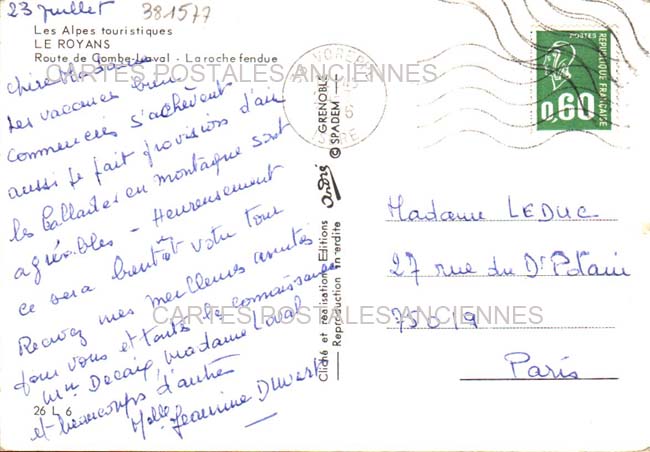 23 juillet
381577
Les Alpes touristiques
LE ROYANS
Route de Combe-Laval - La roche fendue
CARTES POSTALES ANCIENNES
chère Madame
Les vacances bien
commencées s'achèvent
aussi je fait provisions d'air
les ballades en montagne sont
agréables - Heureusement
ce sera bientôt votre tour
Recevez mes meilleures amitiés
pour vous et toutes les connaissances
Mme Decaix, madame Laval
et beaucoup d'autres
Melle Jeannine Duvert
26 L 6
Cliché et réalisation Editions André GRENOBLE
Reproduction interdite © SPADEM
POSTES
REPUBLIQUE FRANÇAISE
0,60
Madame LEDUC
27 rue du Dr Potain
75019
Paris
CARTES POSTALES ANCIENNES